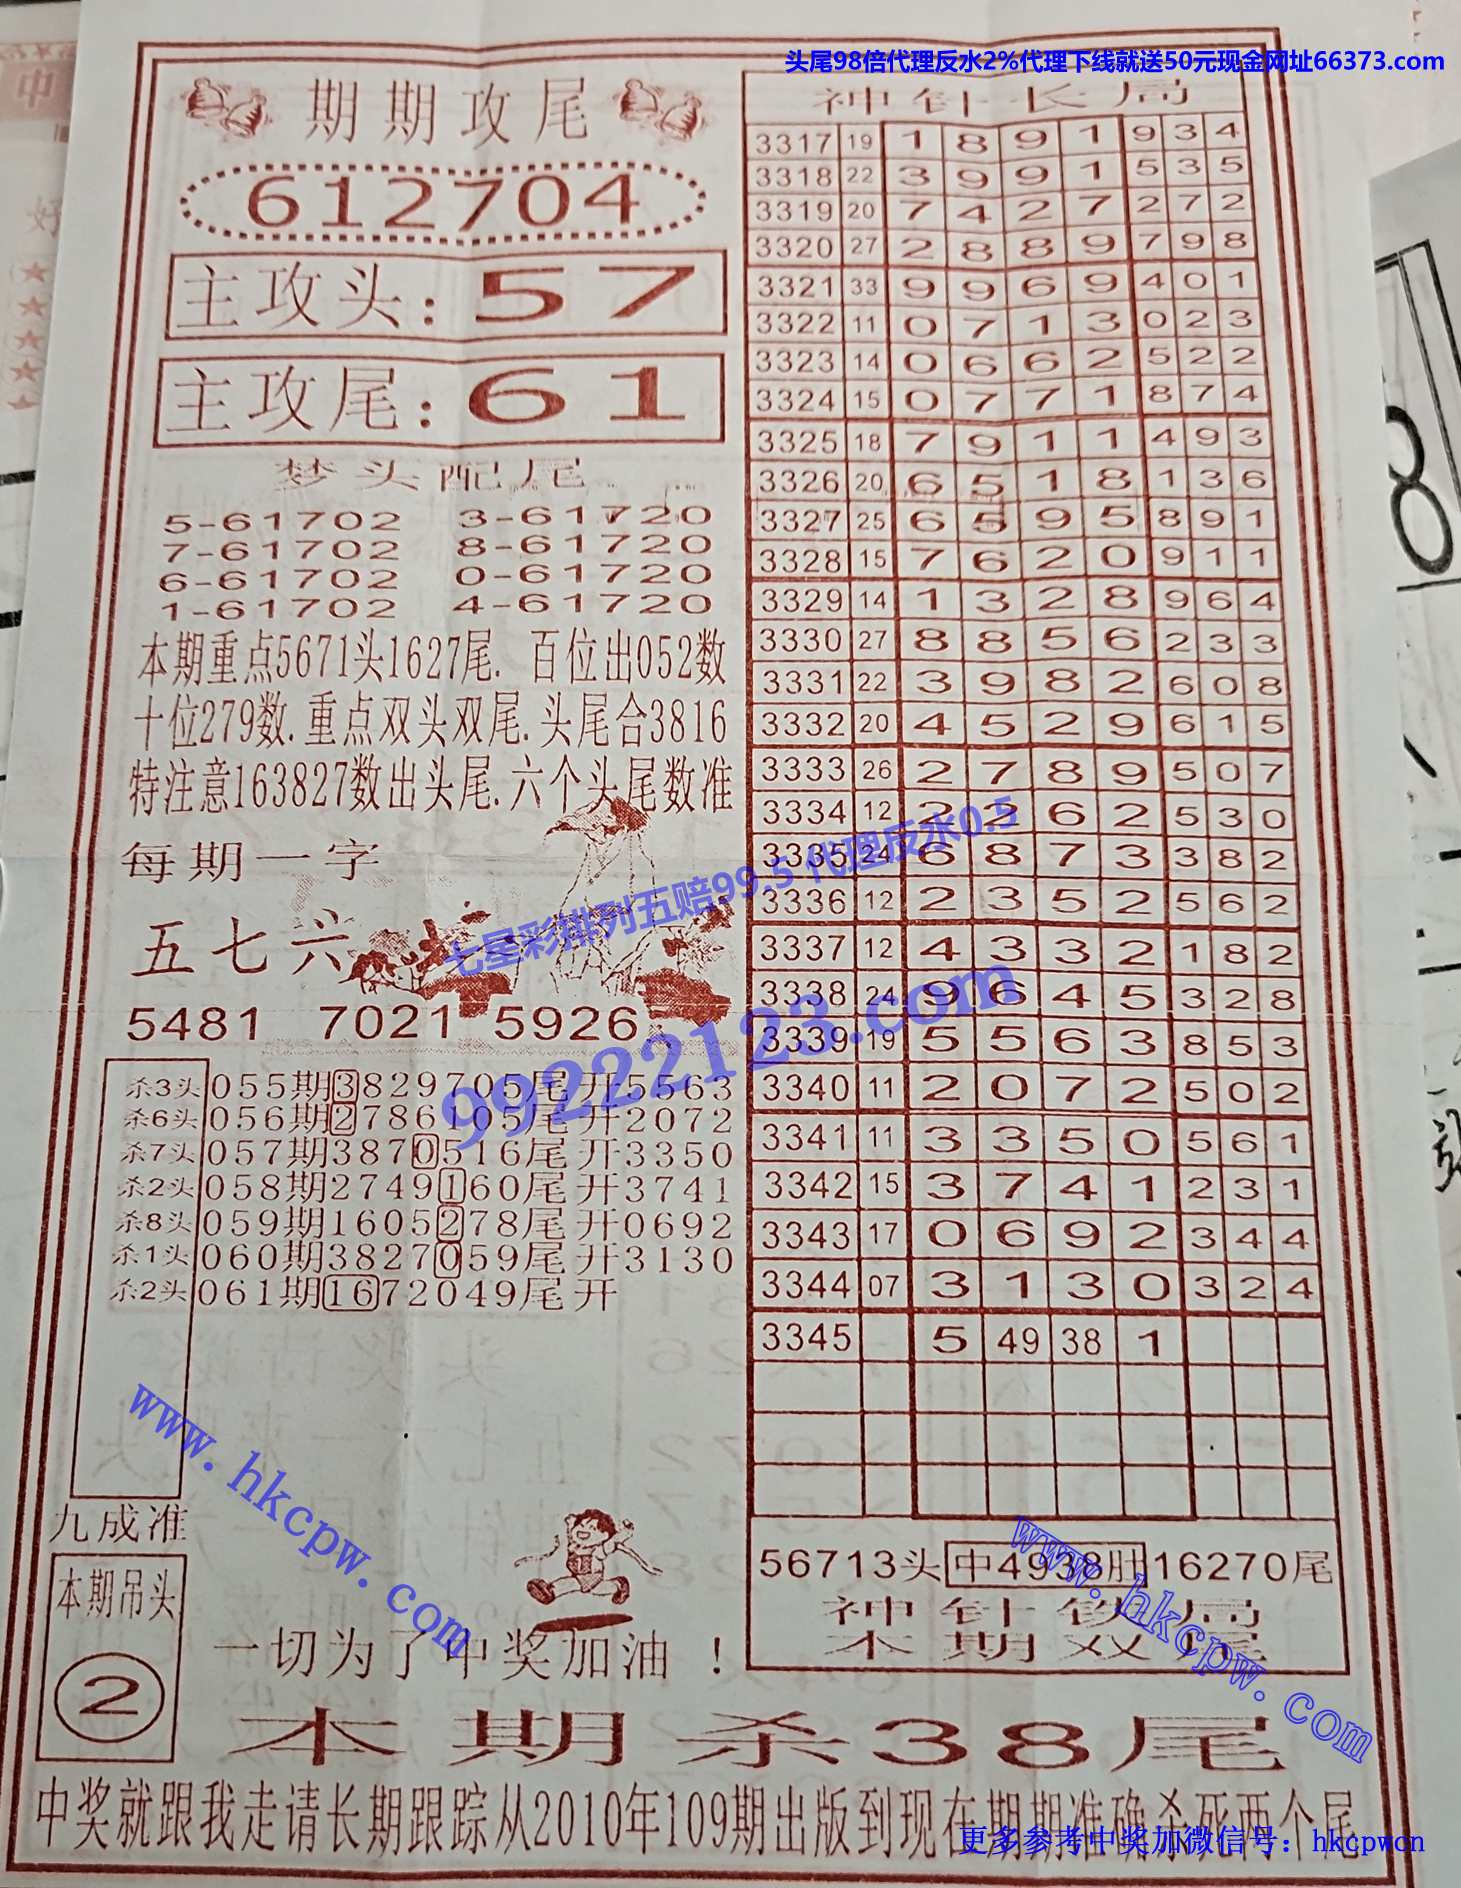 头尾98倍代理反水2%代理下线就送50元现金网址66373.com
期期攻尾
612704
主攻头:57
主攻尾:61
梦头配尾
5-61702 3-61720
7-61702 8-61720
6-61702 0-61720
1-61702 4-61720
本期重点5671头1627尾. 百位出052数
十位279数.重点双头双尾.头尾合3816
特注意163827数出头尾.六个头尾数准
每期一字
五七六
5481 7021 5926
杀3头 055期3829705尾开5563
杀6头 056期2786105尾开2072
杀7头 057期3870516尾开3350
杀2头 058期2749160尾开3741
杀8头 059期1605278尾开0692
杀1头 060期3827059尾开3130
杀2头 061期1672049尾开
九成准
本期吊头
2
一切为了中奖加油!
神针长局
3317 19 1 8 9 1 9 3 4
3318 22 3 9 9 1 5 3 5
3319 20 7 4 2 7 2 7 2
3320 27 2 8 8 9 7 9 8
3321 33 9 9 6 9 4 0 1
3322 11 0 7 1 3 0 2 3
3323 14 0 6 6 2 5 2 2
3324 15 0 7 7 1 8 7 4
3325 18 7 9 1 1 4 9 3
3326 20 6 5 1 8 1 3 6
3327 25 6 5 9 5 8 9 1
3328 15 7 6 2 0 9 1 1
3329 14 1 3 2 8 9 6 4
3330 27 8 8 5 6 2 3 3
3331 22 3 9 8 2 6 0 8
3332 20 4 5 2 9 6 1 5
3333 26 2 7 8 9 5 0 7
3334 12 2 2 6 2 5 3 0
3335 24 6 8 7 3 3 8 2
3336 12 2 3 5 2 5 6 2
3337 12 4 3 3 2 1 8 2
3338 24 9 6 4 5 3 2 8
3339 19 5 5 6 3 8 5 3
3340 11 2 0 7 2 5 0 2
3341 11 3 3 5 0 5 6 1
3342 15 3 7 4 1 2 3 1
3343 17 0 6 9 2 3 4 4
3344 07 3 1 3 0 3 2 4
3345 5 49 38 1
56713头 中4938肚 16270尾
神针铁局
本期双尾
本期杀38尾
中奖就跟我走请长期跟踪从2010年109期出版到现在期期准确杀死两个尾
七星彩排列五赔99.5 代理反水0.5
99222123.com
www.hkcpw.com
www.hkcpw.com
更多参考中奖加微信号：hkcpwcn